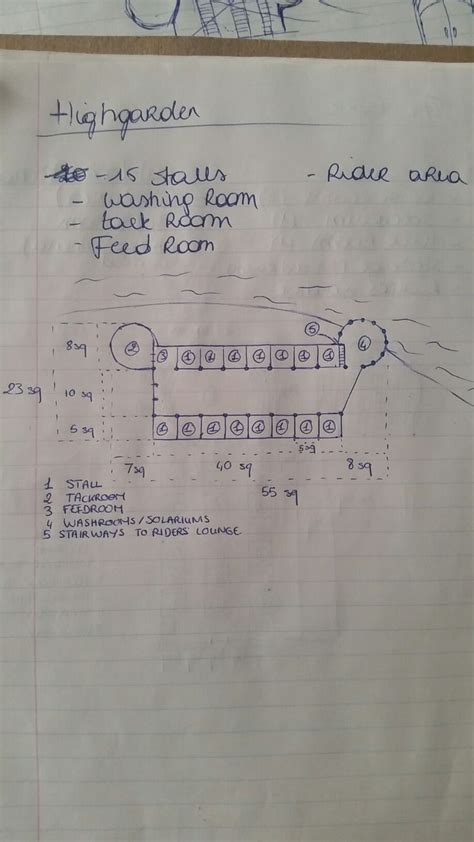 Highgarden
- 15 stalls - Rider area
- washing Room
- tack Room
- Feed Room
5
2 4
8 sq 3 1 1 1 1 1 1 1
23 sq 10 sq
5 sq 1 1 1 1 1 1 1 1
5 sq
7 sq 40 sq 8 sq
55 sq
1 STALL
2 TACKROOM
3 FEEDROOM
4 WASHROOMS/SOLARIUMS
5 STAIRWAYS TO RIDERS LOUNGE